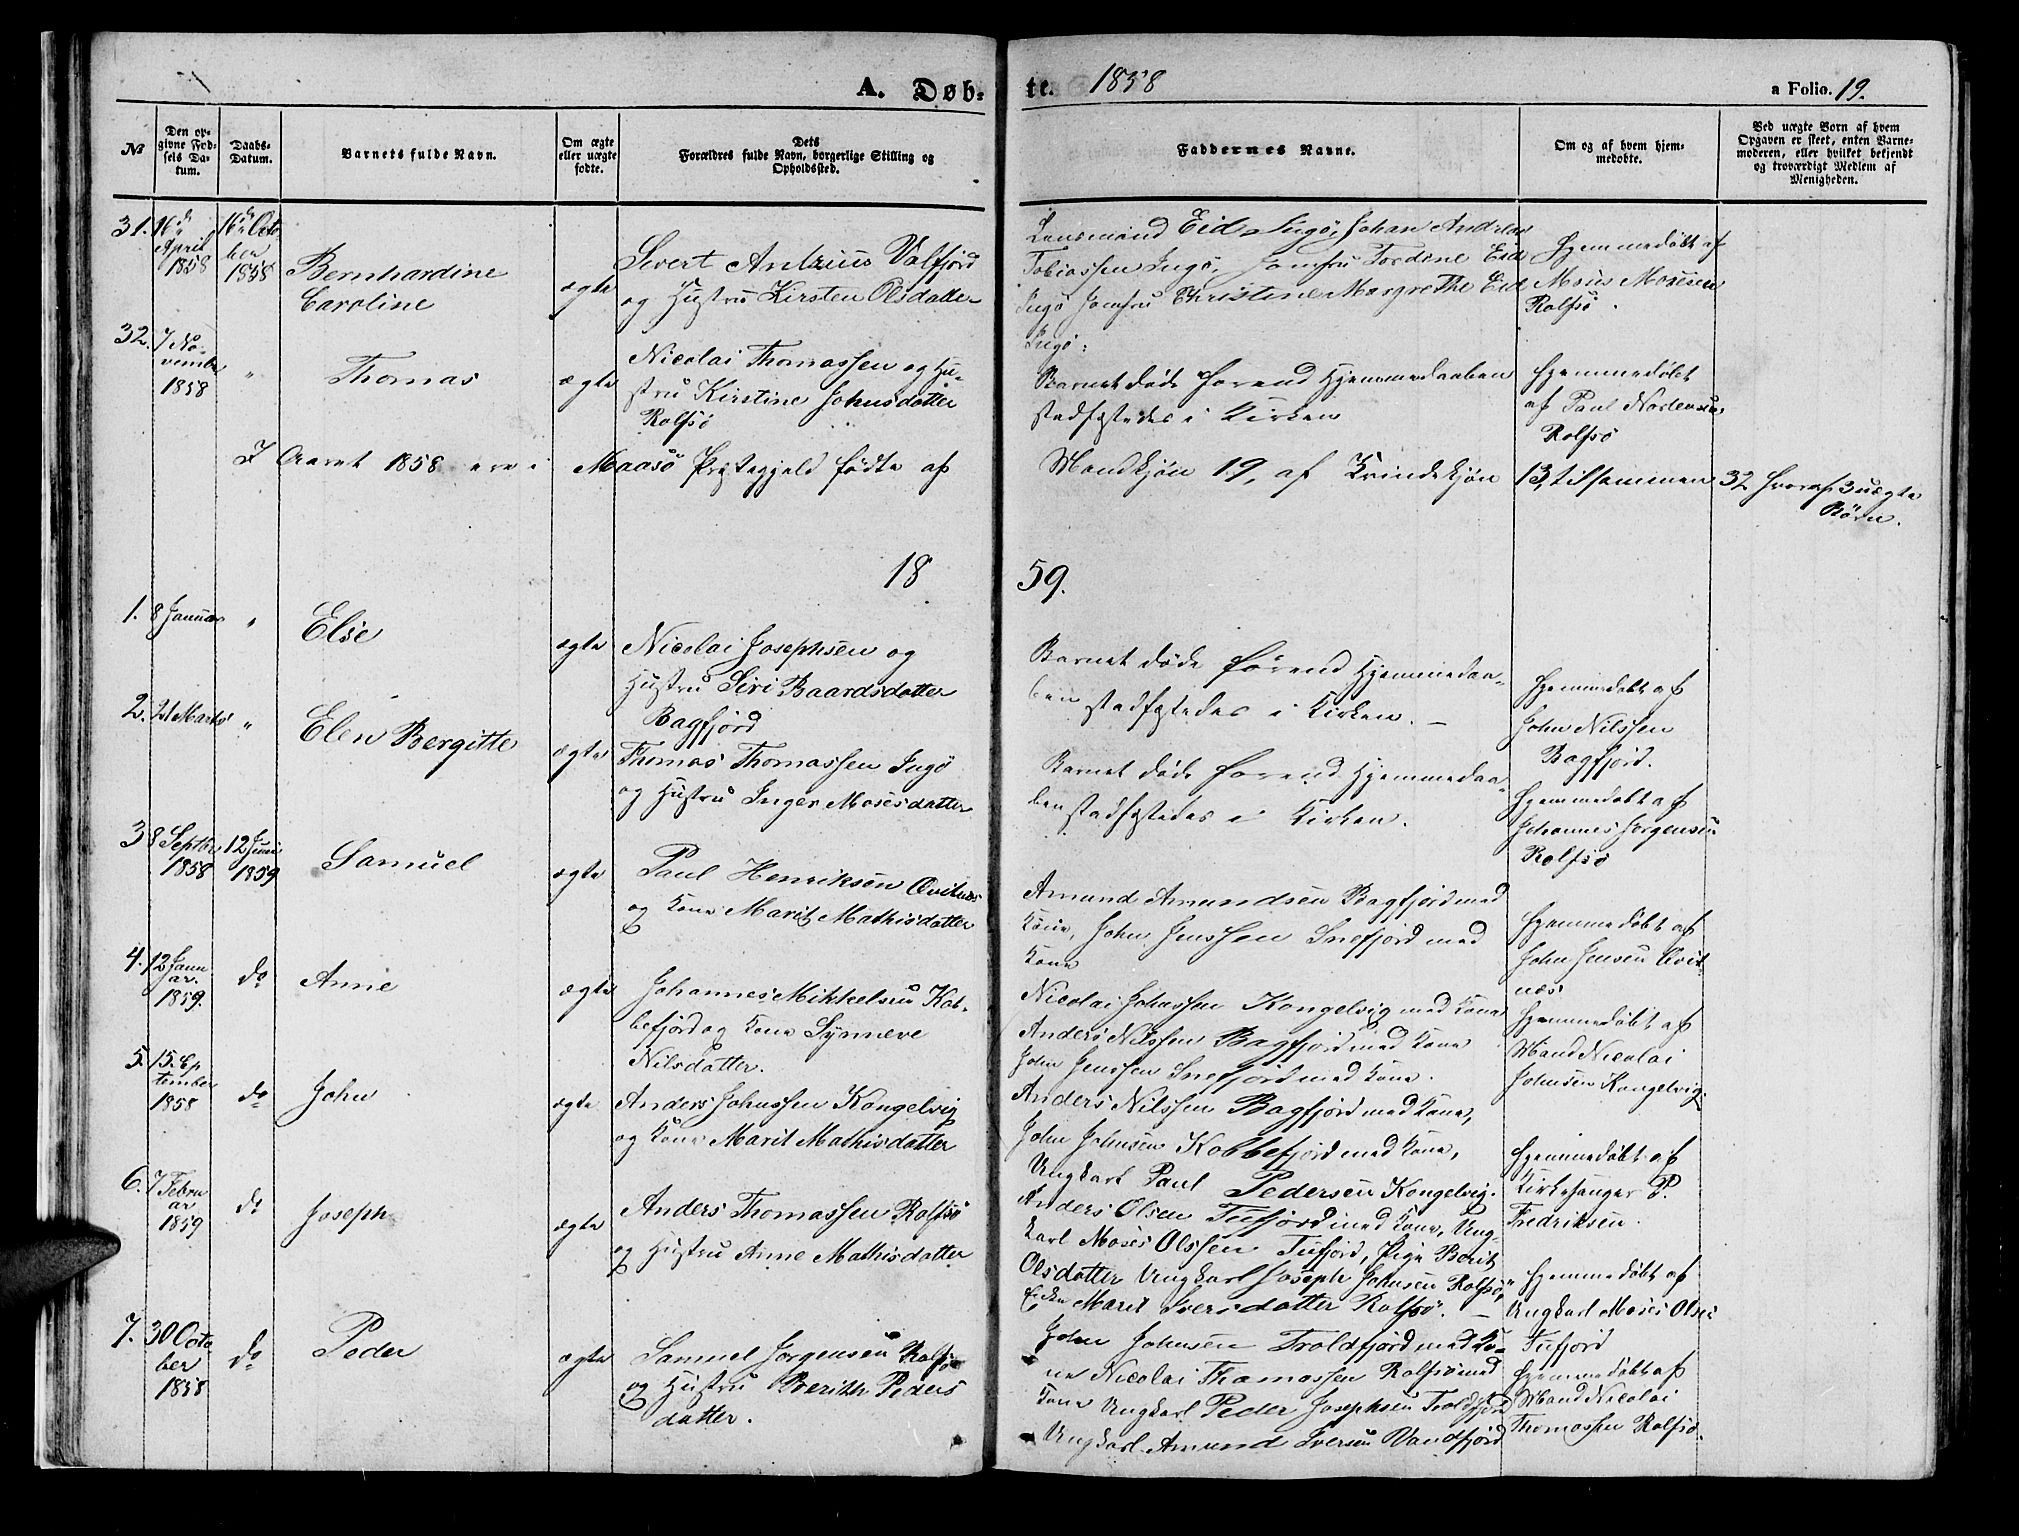 A. Døb-
te. 1858
a Folio. 19.
№
Den op-
givne Fød-
sels Da-
tum.
Daabs-
Datum.
Barnets fulde Navn.
Om ægte
eller uægte
fødte.
Dets
Forældres fulde Navn, borgerlige Stilling og
Opholdssted.
Faddernes Navne.
Om og af hvem hjem-
medøbte.
Ved uægte Born af hvem
Opgaven er skeet, enten Barne-
moderen, eller hvilket bekjendt
og troværdigt Medlem af
Menigheden.
31.
16de
April
1858
16de Octo
ber
1858
Bernhardine
Caroline
ægte
Sivert Antzius Valfjord
og Hustru Kirsten Olsdatter
Lensmand Eid Ingø, Johan Andreas
Tobiassen Ingø, Jomfru Tordine Eid
Ingø Jomfru Christine Margrethe Eid
Ingø.
Hjemmedøbt af
Moses Mosesen
Rolfsø.
32.
7 No-
vember
1858
"
Thomas
ægte
Nicolai Thomassen og Hu-
stru Kirstine Johnsdatter
Rolfsø
Barnet døde forend Hjemmedaaben
stadfæstedes i Kirken
Hjemmedøbt
af Paul Mortensen
Rolfsø
I Aaret 1858 ere i Maasø Præstegjeld fødte af
Mandkjøn 19, af Kvindekjøn 13, tilsammen 32 hvoraf 3 uægte
Børn.
18
59.
1.
8 Januar
"
Else
ægte
Nicolai Josephsen og
Hustru Siri Baardsdatter
Bagfjord
Barnet døde førend Hjemmedaa-
ben stadfæstedes i Kirken. —
Hjemmedøbt af
John Nilssen
Bagfjord.
2.
21 Marts
"
Elen Bergitte
ægte
Thomas Thomassen Ingø
og Hustru Inger Mosesdatter
Barnet døde forend Hjemmedaa-
ben stadfæstedes i Kirken.
Hjemmedøbt af
Johannes Jørgensen
Rolfsø
3
8 Septbr
1858
12 Juni
1859
Samuel
ægte
Paul Henriksen Qvitnæs
og Kone Marit Mathisdatter
Amund Amundsen Bagfjord med
Kone, John Jenssen Snefjord med
Kone
Hjemmedøbt af
John Jensen Qvit
næs
4.
12 Janu
ar.
1859.
do
Anne
ægte
Johannes Mikkelsen Kob-
befjord og Kone Synneve
Nilsdatter.
Nicolai Johnssen Kongelvig med Kone
Anders Nilssen Bagfjord med Kone
John Jenssen Snefjord med Kone.
Hjemmedøbt af
Mand Nicolai
Johnsen Kongelvig.
5.
15 Sep
tember
1858
do
John
ægte
Anders Johnssen Kongelvig
og Kone Marit Mathisdatter
Anders Nilssen Bagfjord med Kone,
John Johnsen Kobbefjord med Kone,
Ungkarl Paul Pedersen Kongelvig.
Hjemmedøbt af
Kirkesanger P.
Fredriksen.
6.
7 Febru
ar
1859
do
Joseph
ægte
Anders Thomassen Rolfsø
og Hustru Anne Mathisdatter
Anders Olsen Tufjord med Kone, Ung-
karl Moses Olssen Tufjord, Pige Berit
Olsdatter Ungkarl Joseph Johnsen Rolfsø,
Marit Iversdatter Rolfsø. —
Hjemmedøbt af
Ungkarl Moses Olsen
Tufjord
7.
30 Octo
ber
1858
do
Peder
ægte
Samuel Jørgensen Rolfsø
og Hustru Berith Peders
datter.
John Johnsen Troldfjord med Ko-
ne Nicolai Thomassen Rolfsø med
Kone Ungkarl Peder Josephsen Troldfjord
Ungkarl Amund Iversen Vandfjord
Hjemmedøbt af
Mand Nicolai
Thomassen Rolfsø.